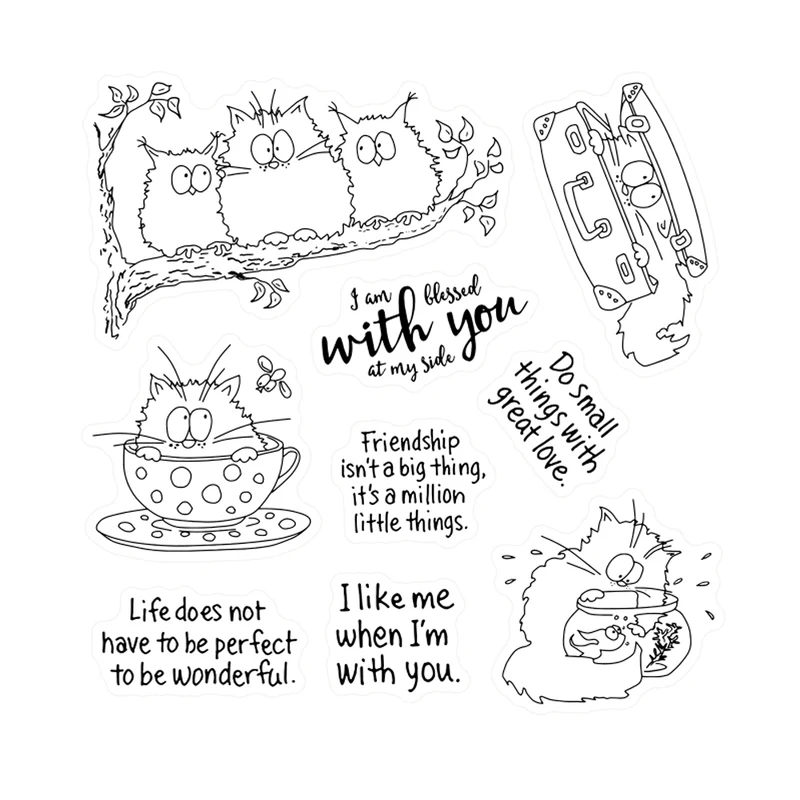 I am blessed
with you
at my side
Do small
things with
great love.
Friendship
isn't a big thing,
it's a million
little things.
Life does not
have to be perfect
to be wonderful.
I like me
when I'm
with you.